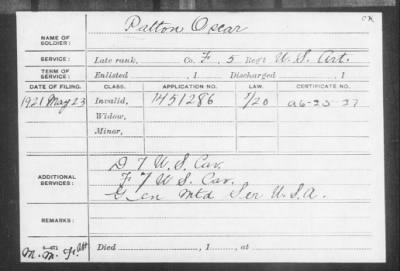 OK
NAME OF SOLDIER: Patton Oscar
SERVICE: Late rank, Co. F, 5 Reg't U.S. Art.
TERM OF SERVICE: Enlisted , 1 Discharged , 1
DATE OF FILING. CLASS. APPLICATION NO. LAW. CERTIFICATE NO.
1921 May 23 Invalid, 1451286 1/20 A6-23-27
Widow,
Minor,
D 7 U.S. Cav.
ADDITIONAL SERVICES: F 7 U.S. Cav.
Gen Mtd Ser U.S.A.
REMARKS:
M.M. Att
Died , 1 , at